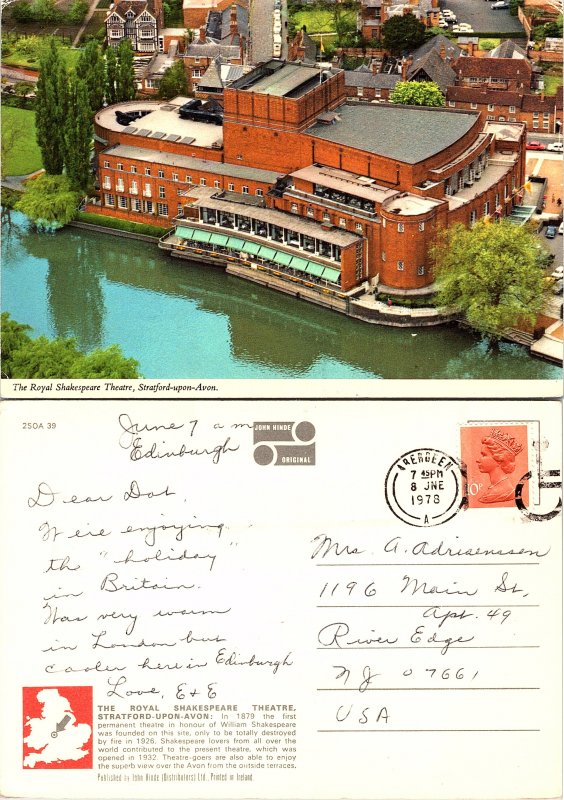 The Royal Shakespeare Theatre, Stratford-upon-Avon.
2SOA 39
June 7 a m
Edinburgh
JOHN HINDE
ORIGINAL
ABERDEEN
7 45PM
8 JNE
1978
A
10P
Dear Dot,
We're enjoying
the "holiday"
in Britain.
Was very warm
in London but
cooler here in Edinburgh
Love, E & E
Mrs. A. Adriaenssen
1196 Main St.
Apt. 49
River Edge
NJ 07661
USA
THE ROYAL SHAKESPEARE THEATRE,
STRATFORD-UPON-AVON: In 1879 the first
permanent theatre in honour of William Shakespeare
was founded on this site, only to be totally destroyed
by fire in 1926. Shakespeare lovers from all over the
world contributed to the present theatre, which was
opened in 1932. Theatre-goers are also able to enjoy
the superb view over the Avon from the outside terraces.
Published by John Hinde (Distributors) Ltd., Printed in Ireland